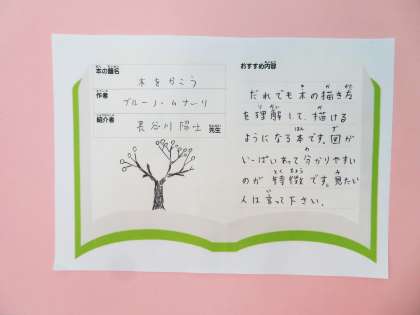 本の題名
木をかこう
作者
ブルーノ・ムナーリ
紹介者
長谷川 陽士 先生
おすすめ内容
だれでも木の描き方
を理解して、描ける
ようになる本です。図が
いっぱいあって分かりやすい
のが特徴です。見たい
人は言って下さい。